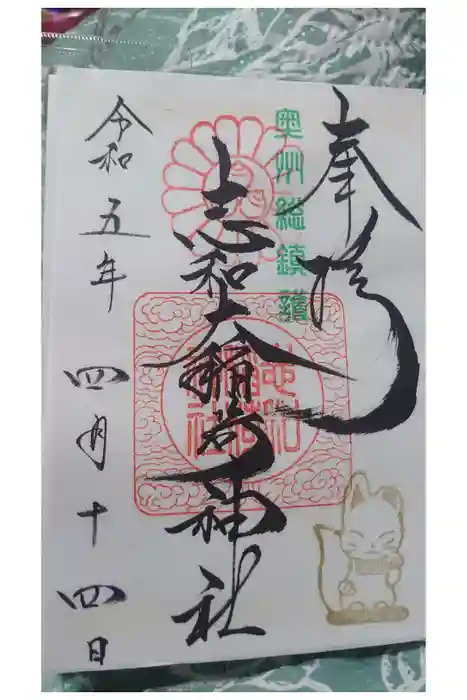 奉拝
奥州総鎮護
志和大稲荷神社
志和稲荷神社
令和五年
四月十四日